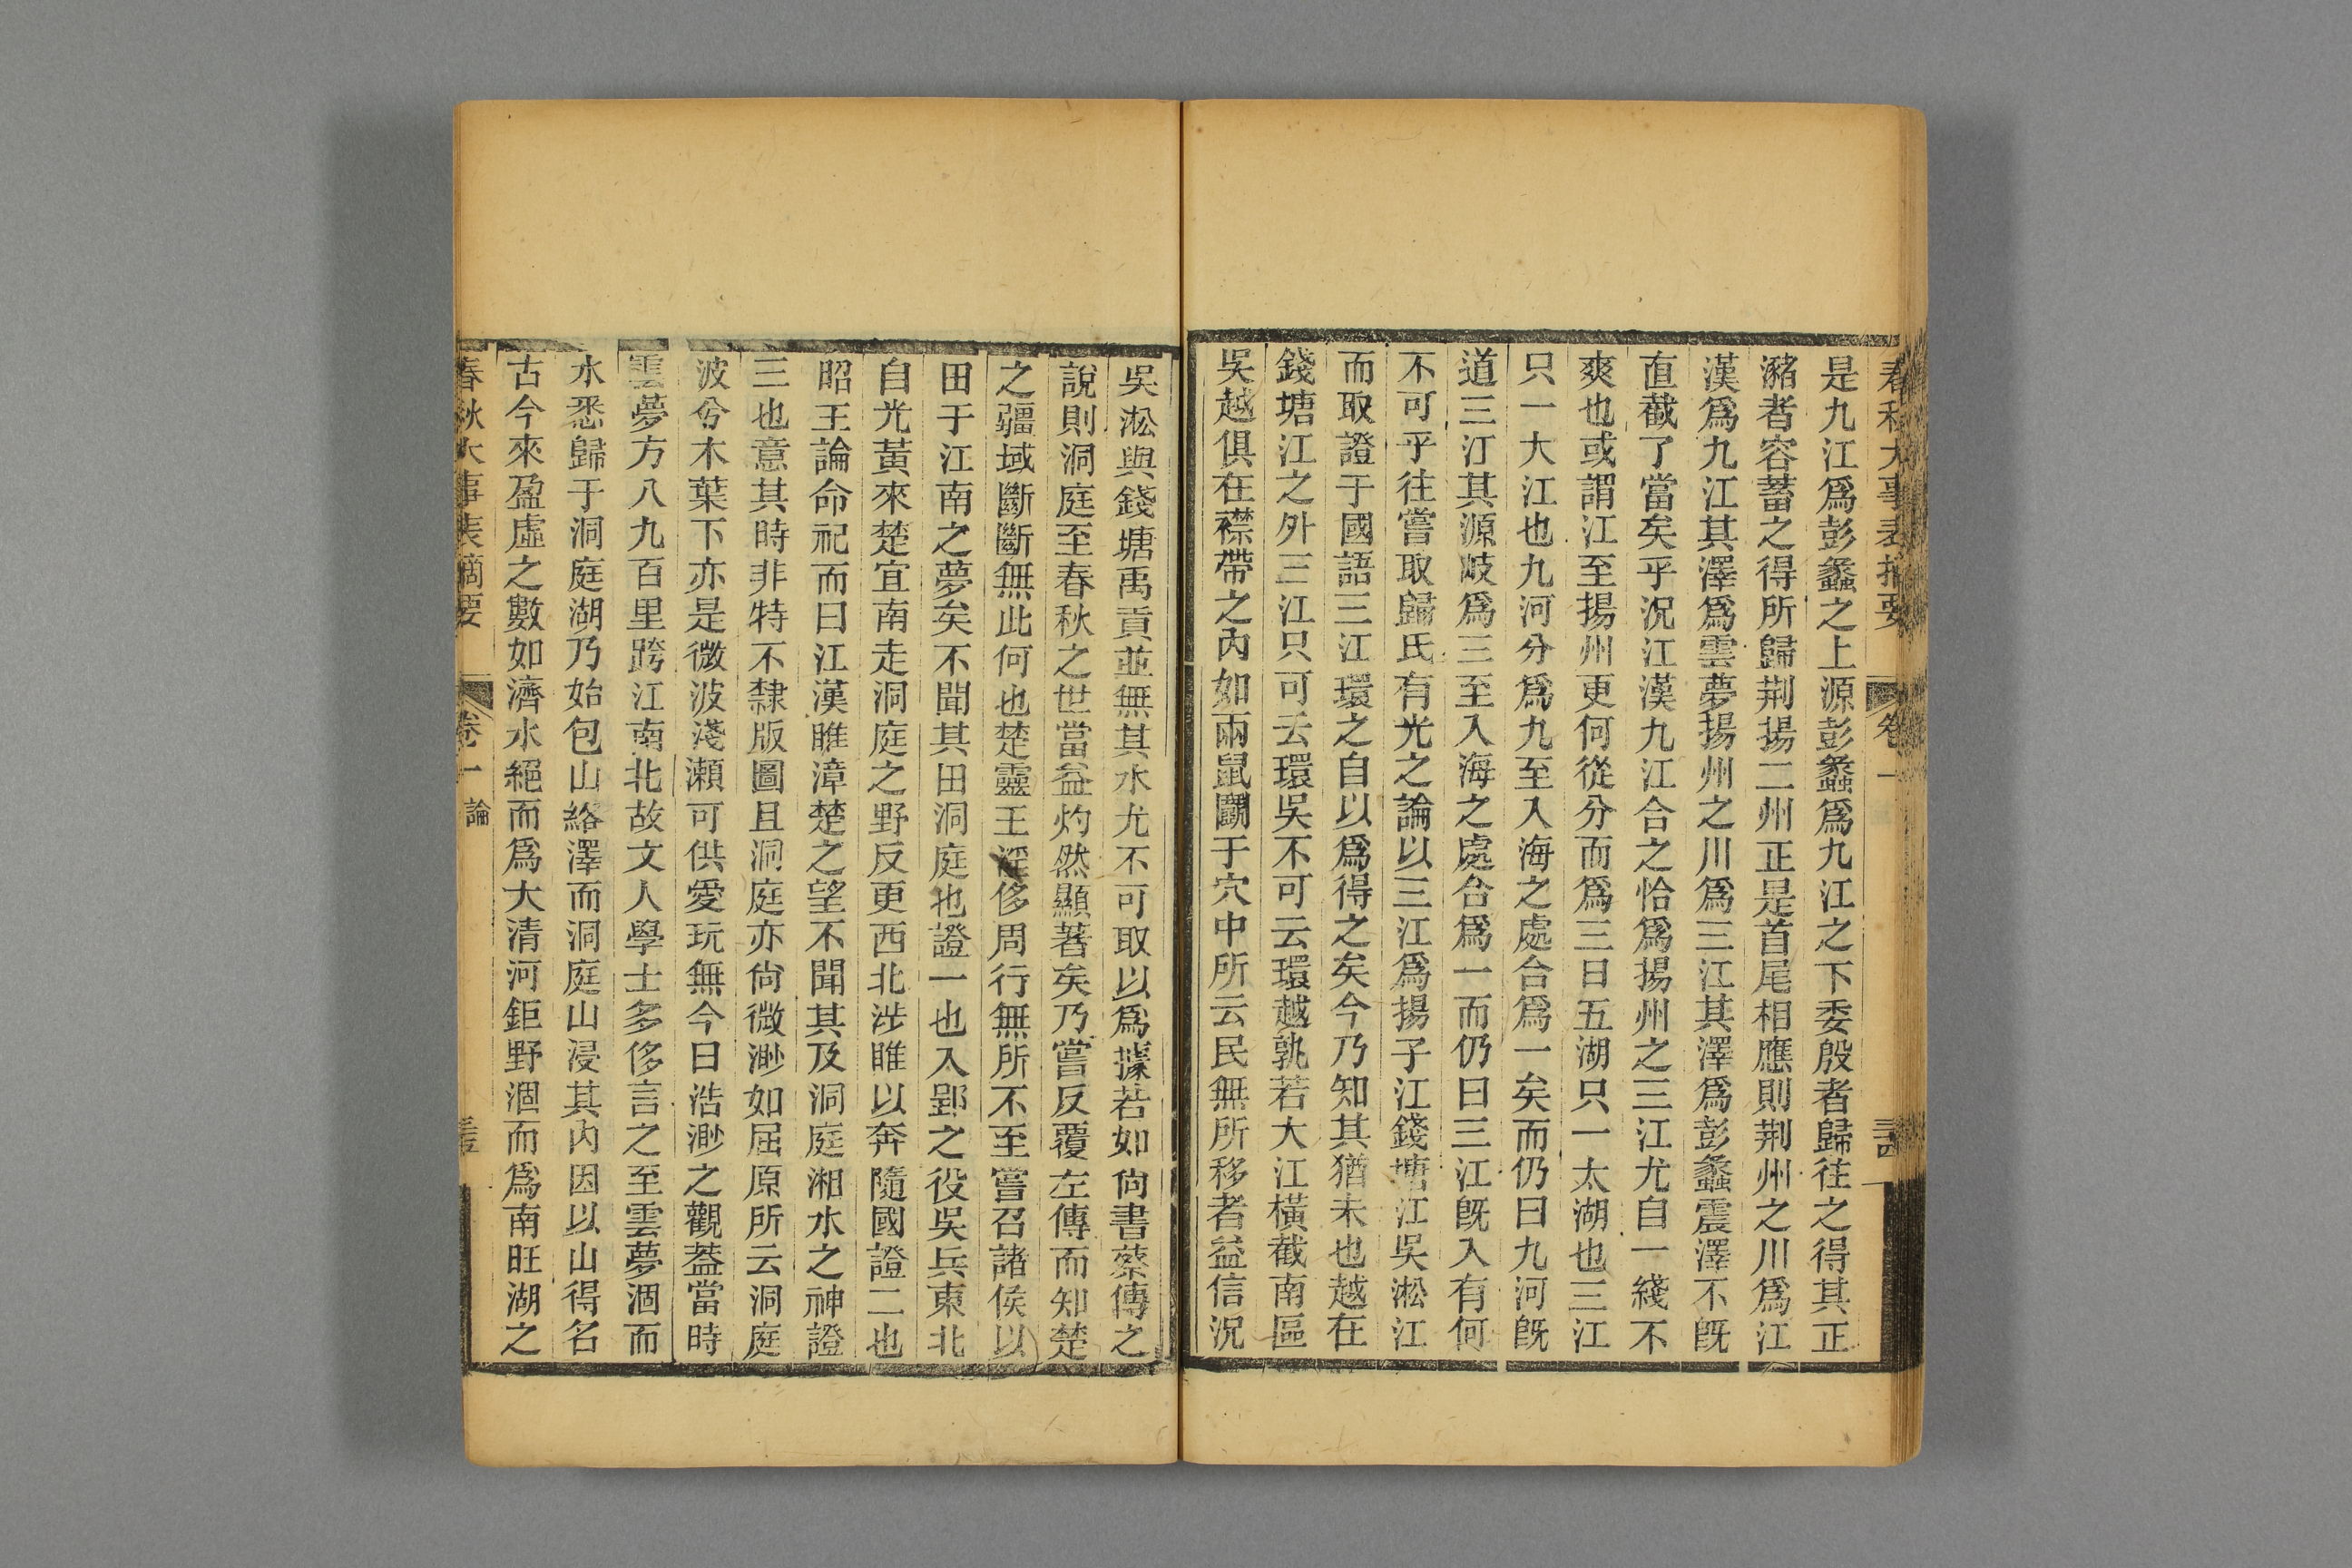 春秋大事表摘要 卷一 三十四
是九江爲彭蠡之上源彭蠡爲九江之下委殷者歸往之得其正
瀦者容蓄之得所歸荆揚二州正是首尾相應則荆州之川爲江
漢爲九江其澤爲雲夢揚州之川爲三江其澤爲彭蠡震澤不旣
直截了當矣乎況江漢九江合之恰爲揚州之三江尤自一綫不
爽也或謂江至揚州更何從分而爲三日五湖只一太湖也三江
只一大江也九河分爲九至入海之處合爲一矣而仍曰九河旣
道三江其源岐爲三至入海之處合爲一而仍曰三江旣入有何
不可乎往嘗取歸氏有光之論以三江爲揚子江錢塘江吳淞江
而取證于國語三江環之自以爲得之矣今乃知其猶未也越在
錢塘江之外三江只可云環吳不可云環越孰若大江橫截南區
吳越俱在襟帶之內如兩鼠鬭于穴中所云民無所移者益信況
吳淞與錢塘禹貢並無其水尤不可取以爲據若如尙書蔡傳之
說則洞庭至春秋之世當益灼然顯著矣乃嘗反覆左傳而知楚
之疆域斷斷無此何也楚靈王淫侈周行無所不至嘗召諸侯以
田于江南之夢矣不聞其田洞庭也證一也入郢之役吳兵東北
自光黃來楚宜南走洞庭之野反更西北涉睢以奔隨國證二也
昭王論命祀而曰江漢睢漳楚之望不聞其及洞庭湘水之神證
三也意其時非特不隸版圖且洞庭亦尙微渺如屈原所云洞庭
波兮木葉下亦是微波淺瀨可供愛玩無今日浩渺之觀葢當時
雲夢方八九百里跨江南北故文人學士多侈言之至雲夢涸而
水悉歸于洞庭湖乃始包山絡澤而洞庭山浸其內因以山得名
古今來盈虛之數如濟水絕而爲大清河鉅野涸而爲南旺湖之
春秋大事表摘要 卷一 論 三十五